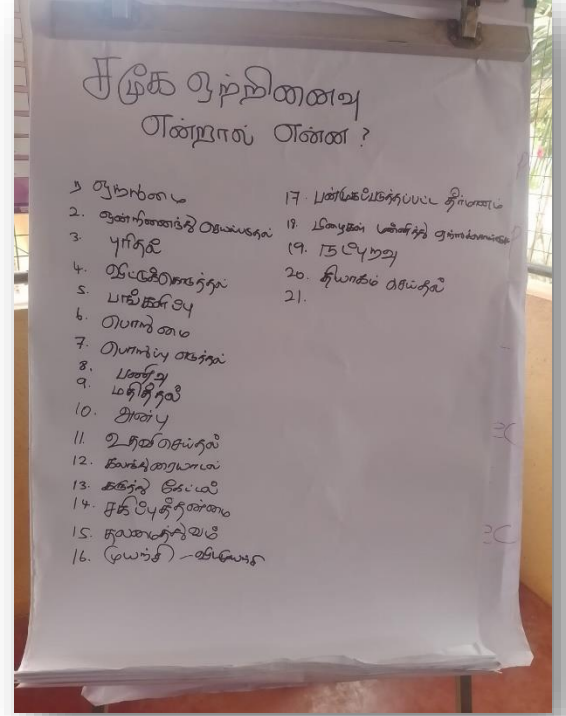 சமூக ஒற்றினைவு
என்றால் என்ன?
1 ஒற்றுமை
2. ஒன்றிணைந்து செயல்படுதல்
3. புரிதல்
4. விட்டுக்கொடுத்தல்
5. பங்களிப்பு
6. பொறுமை
7. பொறுப்பு எடுத்தல்
8. பணிவு
9. மதித்தல்
10. அன்பு
11. உதவி செய்தல்
12. கலந்துரையாடல்
13. கருத்து கேட்டல்
14. சகிப்புத்தன்மை
15. தலைமைத்துவம்
16. முயற்சி -
17. தீர்மானம்
18. பிழைகள் மன்னித்து
19. நட்புறவு
20. தியாகம் செய்தல்
21.